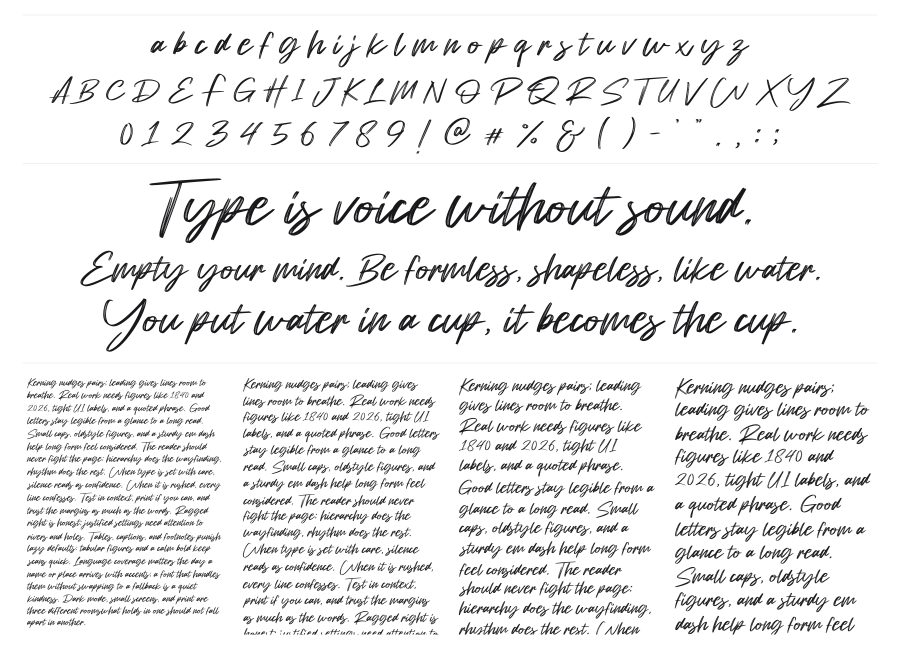 a b c d e f g h i j k l m n o p q r s t u v w x y z
A B C D E F G H I J K L M N O P Q R S T U V W X Y Z
0 1 2 3 4 5 6 7 8 9 ! @ # % & ( ) - ' " . , : ;
Type is voice without sound.
Empty your mind. Be formless, shapeless, like water.
You put water in a cup, it becomes the cup.
Kerning nudges pairs; leading gives lines room to
breathe. Real work needs figures like 1840 and
2026, tight UI labels, and a quoted phrase. Good
letters stay legible from a glance to a long read.
Small caps, oldstyle figures, and a sturdy em dash
help long form feel considered. The reader should
never fight the page: hierarchy does the wayfinding,
rhythm does the rest. When type is set with care,
silence reads as confidence. When it is rushed, every
line confesses. Test in context, print if you can, and
trust the margins as much as the words. Ragged
right is honest; justified settings need attention to
rivers and holes. Tables, captions, and footnotes punish
lazy defaults: tabular figures and a calm bold keep
scans quick. Language coverage matters the day a
name or place arrives with accents; a font that handles
them without swapping to a fallback is a quiet
kindness. Dark mode, small screens, and print are
three different rooms; what holds in one should not fall
apart in another.
Kerning nudges pairs; leading gives
lines room to breathe. Real work needs
figures like 1840 and 2026, tight UI
labels, and a quoted phrase. Good letters
stay legible from a glance to a long
read. Small caps, oldstyle figures, and
a sturdy em dash help long form feel
considered. The reader should never
fight the page: hierarchy does the
wayfinding, rhythm does the rest.
When type is set with care, silence
reads as confidence. When it is rushed,
every line confesses. Test in context,
print if you can, and trust the margins
as much as the words. Ragged right is
honest; justified settings need attention to
Kerning nudges pairs; leading
gives lines room to breathe.
Real work needs figures like
1840 and 2026, tight UI
labels, and a quoted phrase.
Good letters stay legible from a
glance to a long read. Small
caps, oldstyle figures, and a
sturdy em dash help long form
feel considered. The reader
should never fight the page:
hierarchy does the wayfinding,
rhythm does the rest. When
Kerning nudges pairs;
leading gives lines room to
breathe. Real work needs
figures like 1840 and
2026, tight UI labels, and
a quoted phrase. Good
letters stay legible from a
glance to a long read.
Small caps, oldstyle
figures, and a sturdy em
dash help long form feel